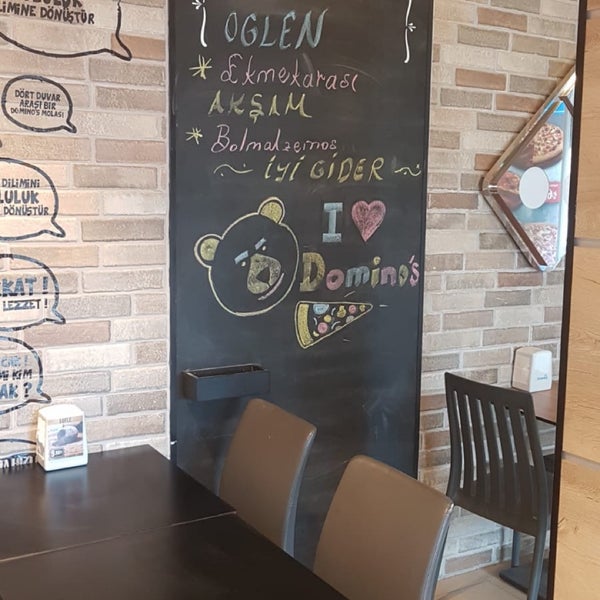 LULUK
DİLİMİNE DÖNÜŞTÜR
DÖRT DUVAR
ARASI BİR
DOMINO'S MOLASI
DİLİMİNİ
LULUK
DÖNÜŞTÜR
KAT !
LEZZET !
KİM
AK ?
OGLEN
* Ekmekarası
AKŞAM
* Bolmalzemos
~ İYİ GİDER ~
I ♥
Domino's